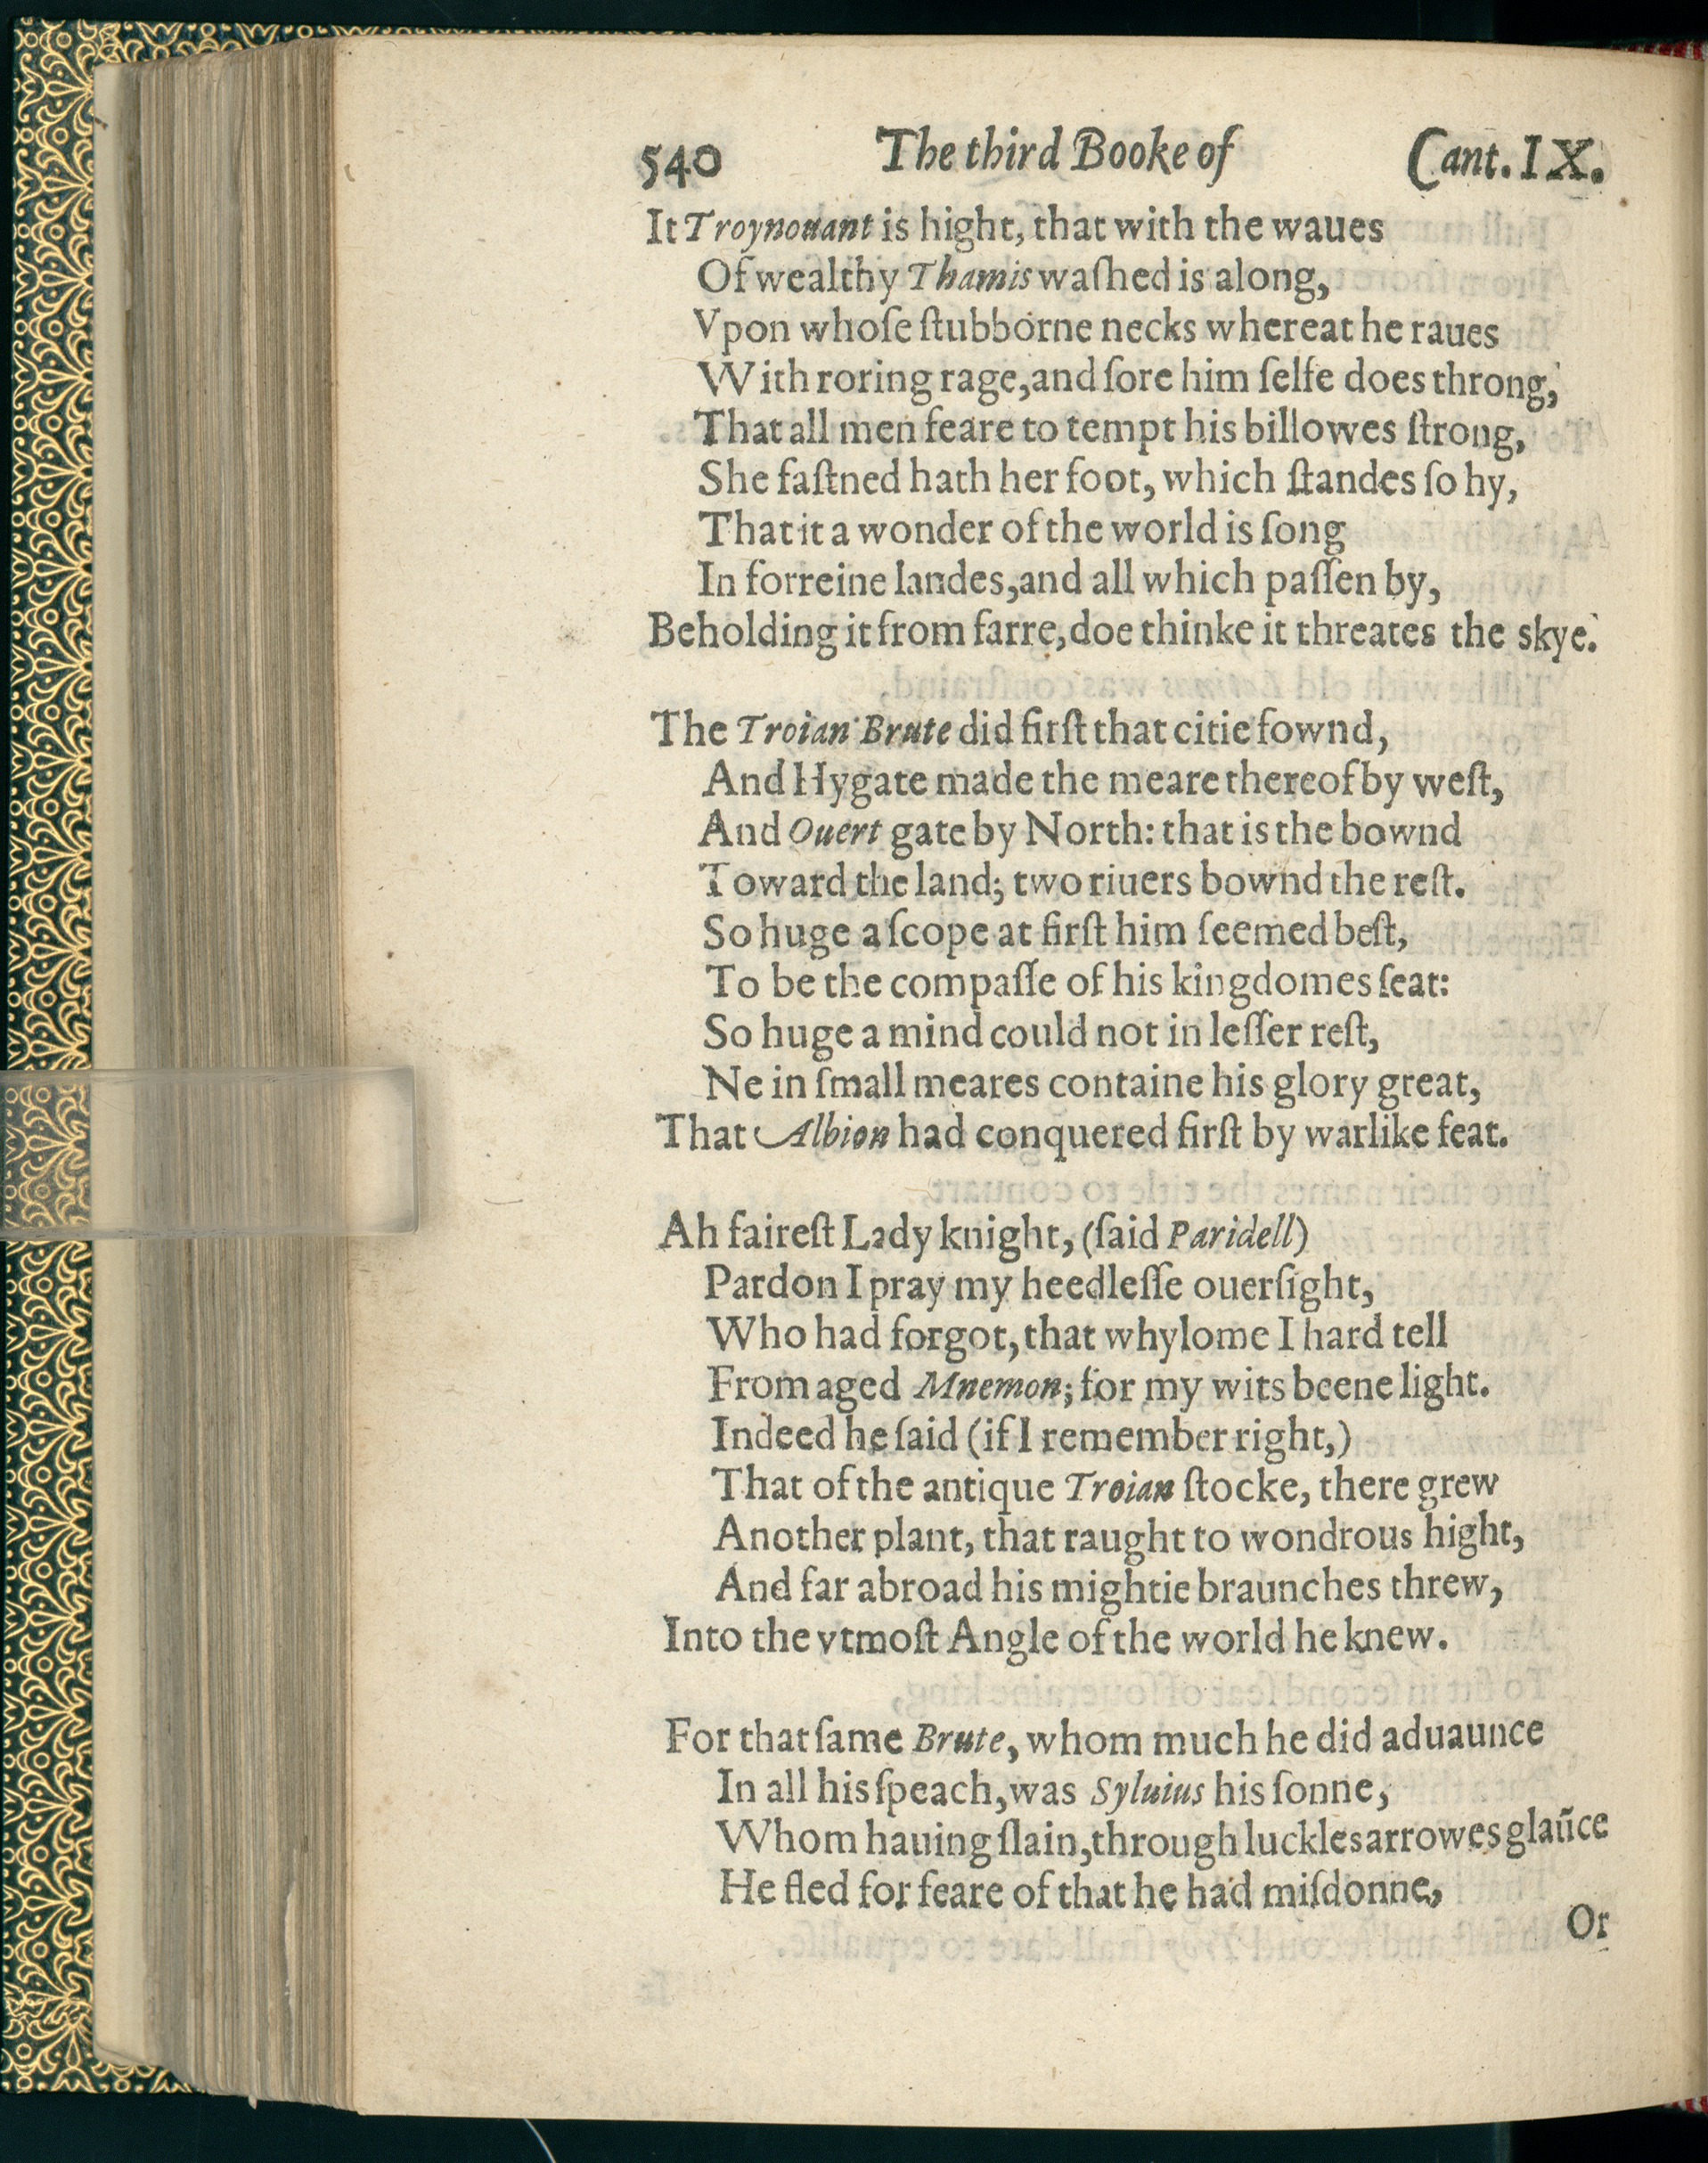 540 The third Booke of Cant. IX.
It Troynouant is hight, that with the waues
Of wealthy Thamis waſhed is along,
Vpon whoſe ſtubborne necks whereat he raues
With roring rage, and ſore him ſelfe does throng,
That all men feare to tempt his billowes ſtrong,
She faſtned hath her foot, which ſtandes ſo hy,
That it a wonder of the world is ſong
In forreine landes, and all which paſſen by,
Beholding it from farre, doe thinke it threates the skye.
The Troian Brute did firſt that citie fownd,
And Hygate made the meare thereof by weſt,
And Ouert gate by North: that is the bownd
Toward the land; two riuers bownd the reſt.
So huge a ſcope at firſt him ſeemed beſt,
To be the compaſſe of his kingdomes ſeat:
So huge a mind could not in leſſer reſt,
Ne in ſmall meares containe his glory great,
That Albion had conquered firſt by warlike feat.
Ah faireſt Lady knight, (ſaid Paridell)
Pardon I pray my heedleſſe ouerſight,
Who had forgot, that whylome I hard tell
From aged Mnemon; for my wits beene light.
Indeed he ſaid (if I remember right,)
That of the antique Troian ſtocke, there grew
Another plant, that raught to wondrous hight,
And far abroad his mightie braunches threw,
Into the vtmoſt Angle of the world he knew.
For that ſame Brute, whom much he did aduaunce
In all his ſpeach, was Syluius his ſonne,
Whom hauing ſlain, through luckles arrowes glaūce
He fled for feare of that he had miſdonne,
Or